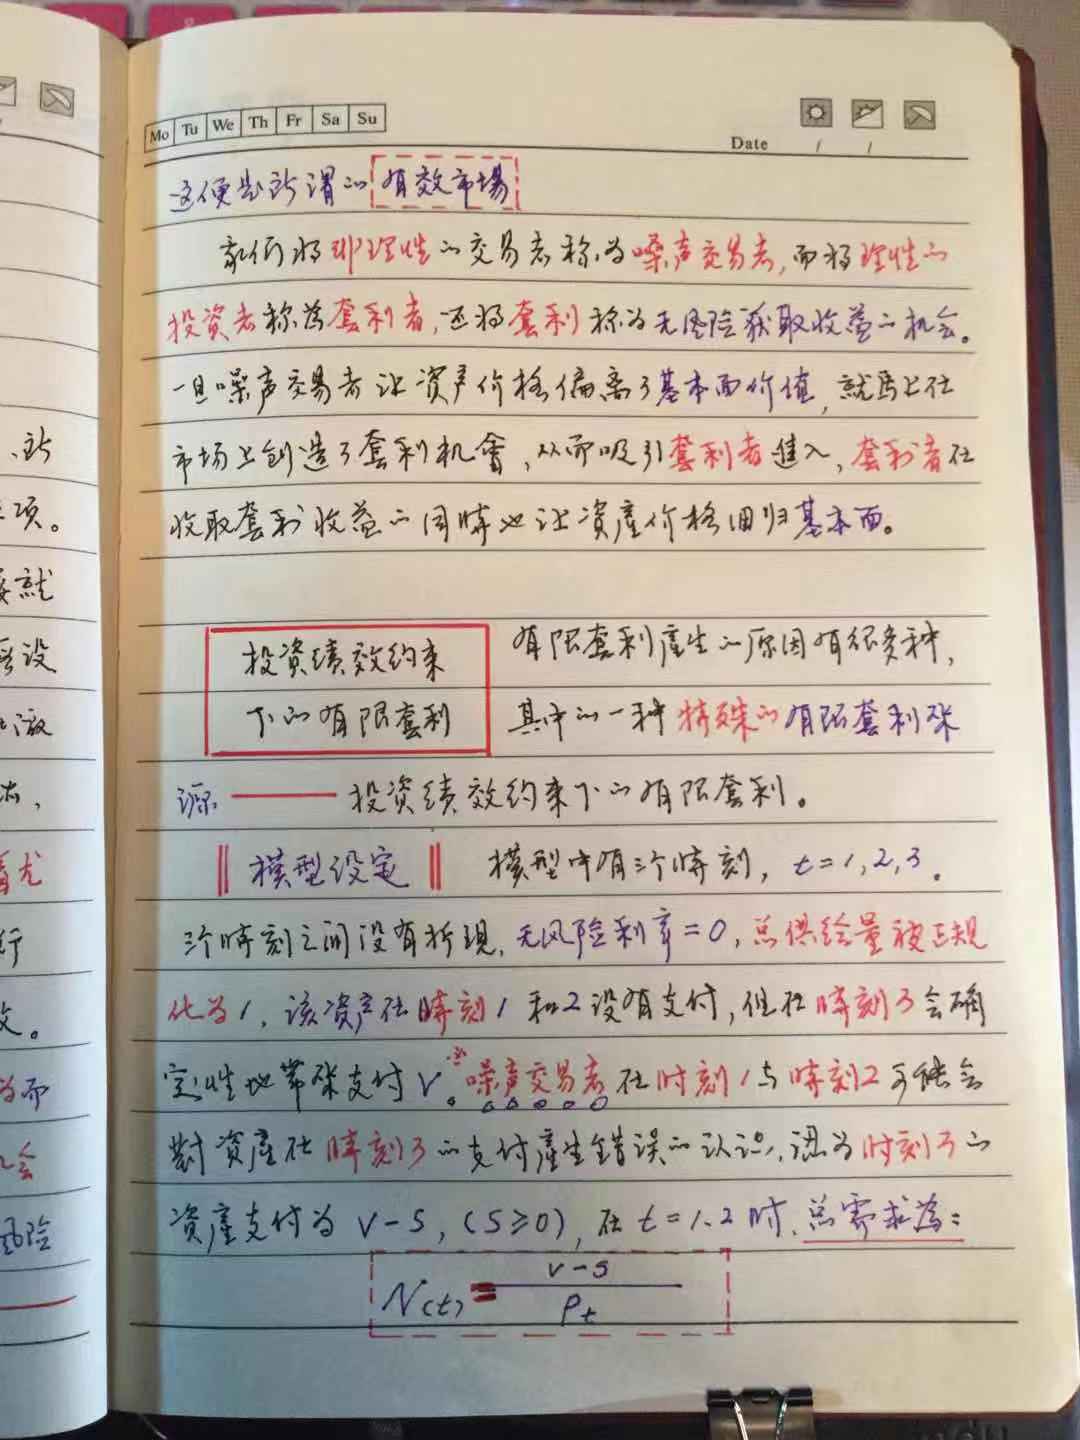 Mo Tu We Th Fr Sa Su
Date / /
这便是所谓的有效市場
我们将非理性的交易者称为噪声交易者,而将理性的
投资者称为套利者,还将套利称为无风险获取收益的机会。
一旦噪声交易者让资产价格偏离了基本面价值,就马上在
市场上创造了套利机會,从而吸引套利者進入,套利者在
收取套利收益的同時也让資產价格回归基本面。
投资績效约束
下的有限套利
有限套利產生的原因有很多种,
其中的一种特殊的有限套利来
源——投资績效约束下的有限套利。
模型设定 模型中有三个時刻,t=1,2,3。
三个時刻之间没有折現,无风险利率=0,总供给量被正规
化为1,该资产在時刻1和2没有支付,但在時刻3会确
定性地带来支付V。噪声交易者在时刻1与時刻2可能会
對資產在時刻3的支付產生錯误的认识,認为时刻3的
資產支付为V-S,(S≥0),在t=1.2时,总需求為:
N(t)=
V-S
Pt
、所
项。
就
设
激
尤
行
。
而
会
风险